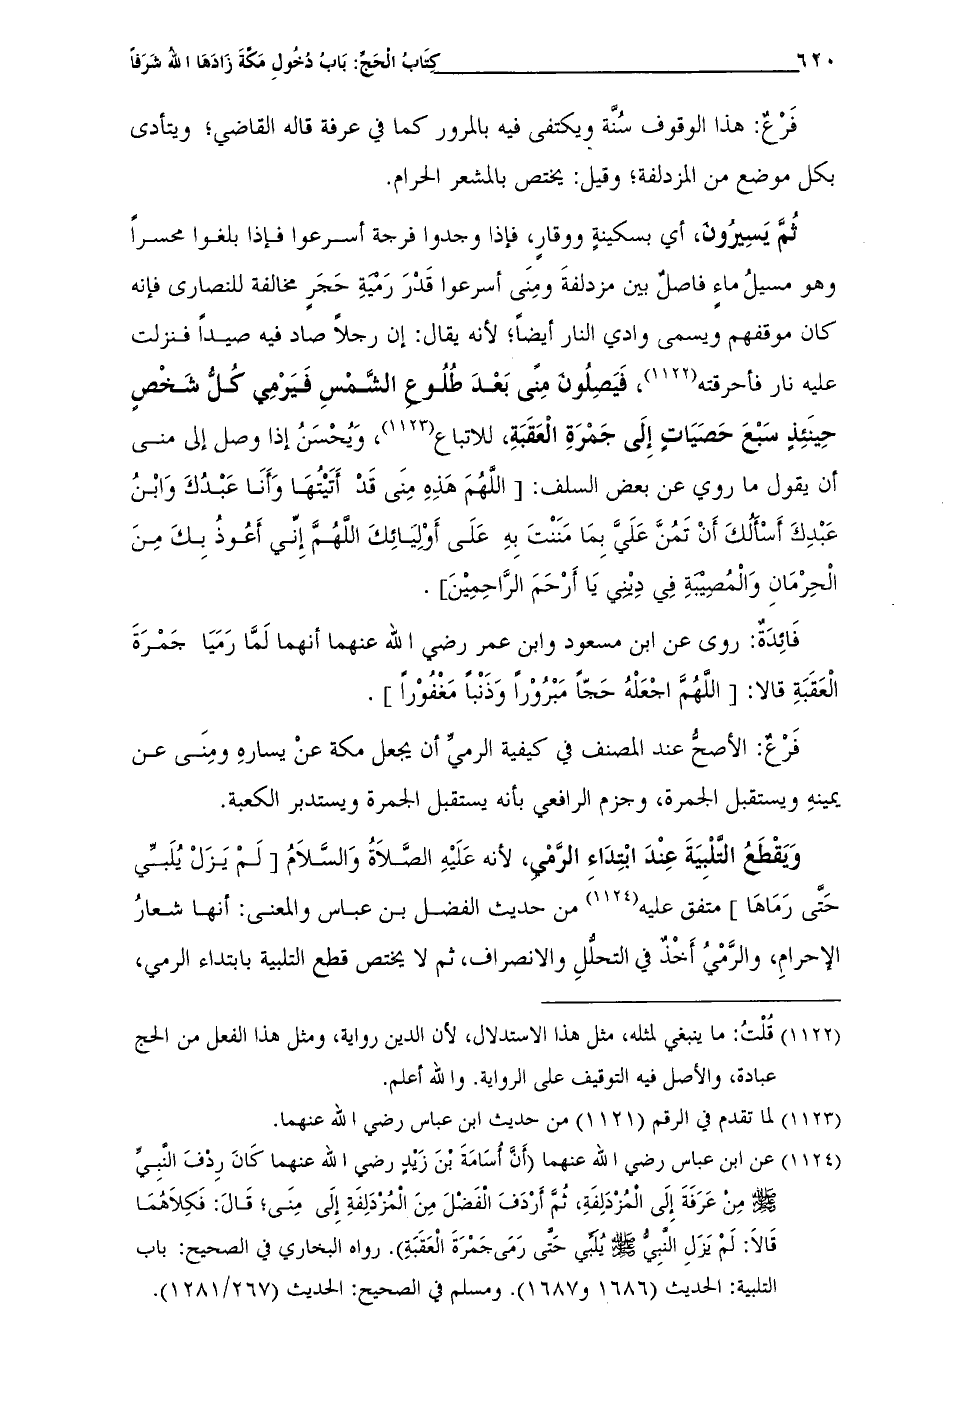 ٦٢٠ كِتَابُ الْحَجِّ: بَابُ دُخُولِ مَكَّةَ زَادَهَا الله شَرَفاً
فَرْعٌ: هذا الوقوف سُنَّة ويكتفى فيه بالمرور كما في عرفة قاله القاضي؛ ويتأدى
بكل موضع من المزدلفة؛ وقيل: يختص بالمشعر الحرام.
ثُمَّ يَسِيرُونَ، أي بسكينةٍ ووقارٍ، فإذا وجدوا فرجة أسرعوا فإذا بلغوا محسراً
وهو مسيلُ ماءٍ فاصلٌ بين مزدلفةَ ومِنَى أسرعوا قَدْرَ رَمْيَةِ حَجَرٍ مخالفة للنصارى فإنه
كان موقفهم ويسمى وادي النار أيضاً؛ لأنه يقال: إن رجلاً صاد فيه صيداً فنزلت
عليه نار فأحرقته(١١٢٢)، فَيَصِلُونَ مِنًى بَعْدَ طُلُوعِ الشَّمْسِ فَيَرْمِي كُلُّ شَخْصٍ
حِينَئِذٍ سَبْعَ حَصَيَاتٍ إِلَى جَمْرَةِ الْعَقَبَةِ، للاتباع(١١٢٣)، وَيُحْسَنُ إذا وصل إلى منى
أن يقول ما روي عن بعض السلف: [ اللَّهُمَّ هَذِهِ مِنَى قَدْ أَتَيْتُهَا وَأَنَا عَبْدُكَ وَابْنُ
عَبْدِكَ أَسْأَلُكَ أَنْ تَمُنَّ عَلَيَّ بِمَا مَنَنْتَ بِهِ عَلَى أَوْلِيَائِكَ اللَّهُمَّ إِنِّي أَعُوذُ بِكَ مِنَ
الْحِرْمَانِ وَالْمُصِيْبَةِ فِي دِيْنِي يَا أَرْحَمَ الرَّاحِمِيْنَ] .
فَائِدَةٌ: روى عن ابن مسعود وابن عمر رضي الله عنهما أنهما لَمَّا رَمَيَا جَمْرَةَ
الْعَقَبَةِ قالا: [ اللَّهُمَّ اجْعَلْهُ حَجّاً مَبْرُوْراً وَذَنْباً مَغْفُوْراً ] .
فَرْعٌ: الأصحُّ عند المصنف في كيفية الرميِّ أن يجعل مكة عنْ يسارهِ ومِنَى عن
يمينهِ ويستقبل الجمرة، وجزم الرافعي بأنه يستقبل الجمرة ويستدبر الكعبة.
وَيَقْطَعُ التَّلْبِيَةَ عِنْدَ ابْتِدَاءِ الرَّمْيِ، لأنه عَلَيْهِ الصَّلاَةُ وَالسَّلاَمُ [ لَمْ يَزَلْ يُلَبِّي
حَتَّى رَمَاهَا ] متفق عليه(١١٢٤) من حديث الفضل بن عباس والمعنى: أنها شعارُ
الإحرامِ، والرَّمْيُ أَخْذٌ في التحلُّلِ والانصراف، ثم لا يختص قطع التلبية بابتداء الرمي،
(١١٢٢) قُلْتُ: ما ينبغي لمثله، مثل هذا الاستدلال، لأن الدين رواية، ومثل هذا الفعل من الحج
عبادة، والأصل فيه التوقيف على الرواية. والله أعلم.
(١١٢٣) لما تقدم في الرقم (١١٢١) من حديث ابن عباس رضي الله عنهما.
(١١٢٤) عن ابن عباس رضي الله عنهما (أَنَّ أُسَامَةَ بْنَ زَيْدٍ رضي الله عنهما كَانَ رِدْفَ النَّبِيِّ
ﷺ مِنْ عَرَفَةَ إِلَى الْمُزْدَلِفَةِ، ثُمَّ أَرْدَفَ الْفَضْلَ مِنَ الْمُزْدَلِفَةِ إِلَى مِنَى؛ قَالَ: فَكِلاَهُمَا
قَالاَ: لَمْ يَزَلِ النَّبِيُّ ﷺ يُلَبِّي حَتَّى رَمَى جَمْرَةَ الْعَقَبَةِ). رواه البخاري في الصحيح: باب
التلبية: الحديث (١٦٨٦ و١٦٨٧). ومسلم في الصحيح: الحديث (١٢٨١/٢٦٧).